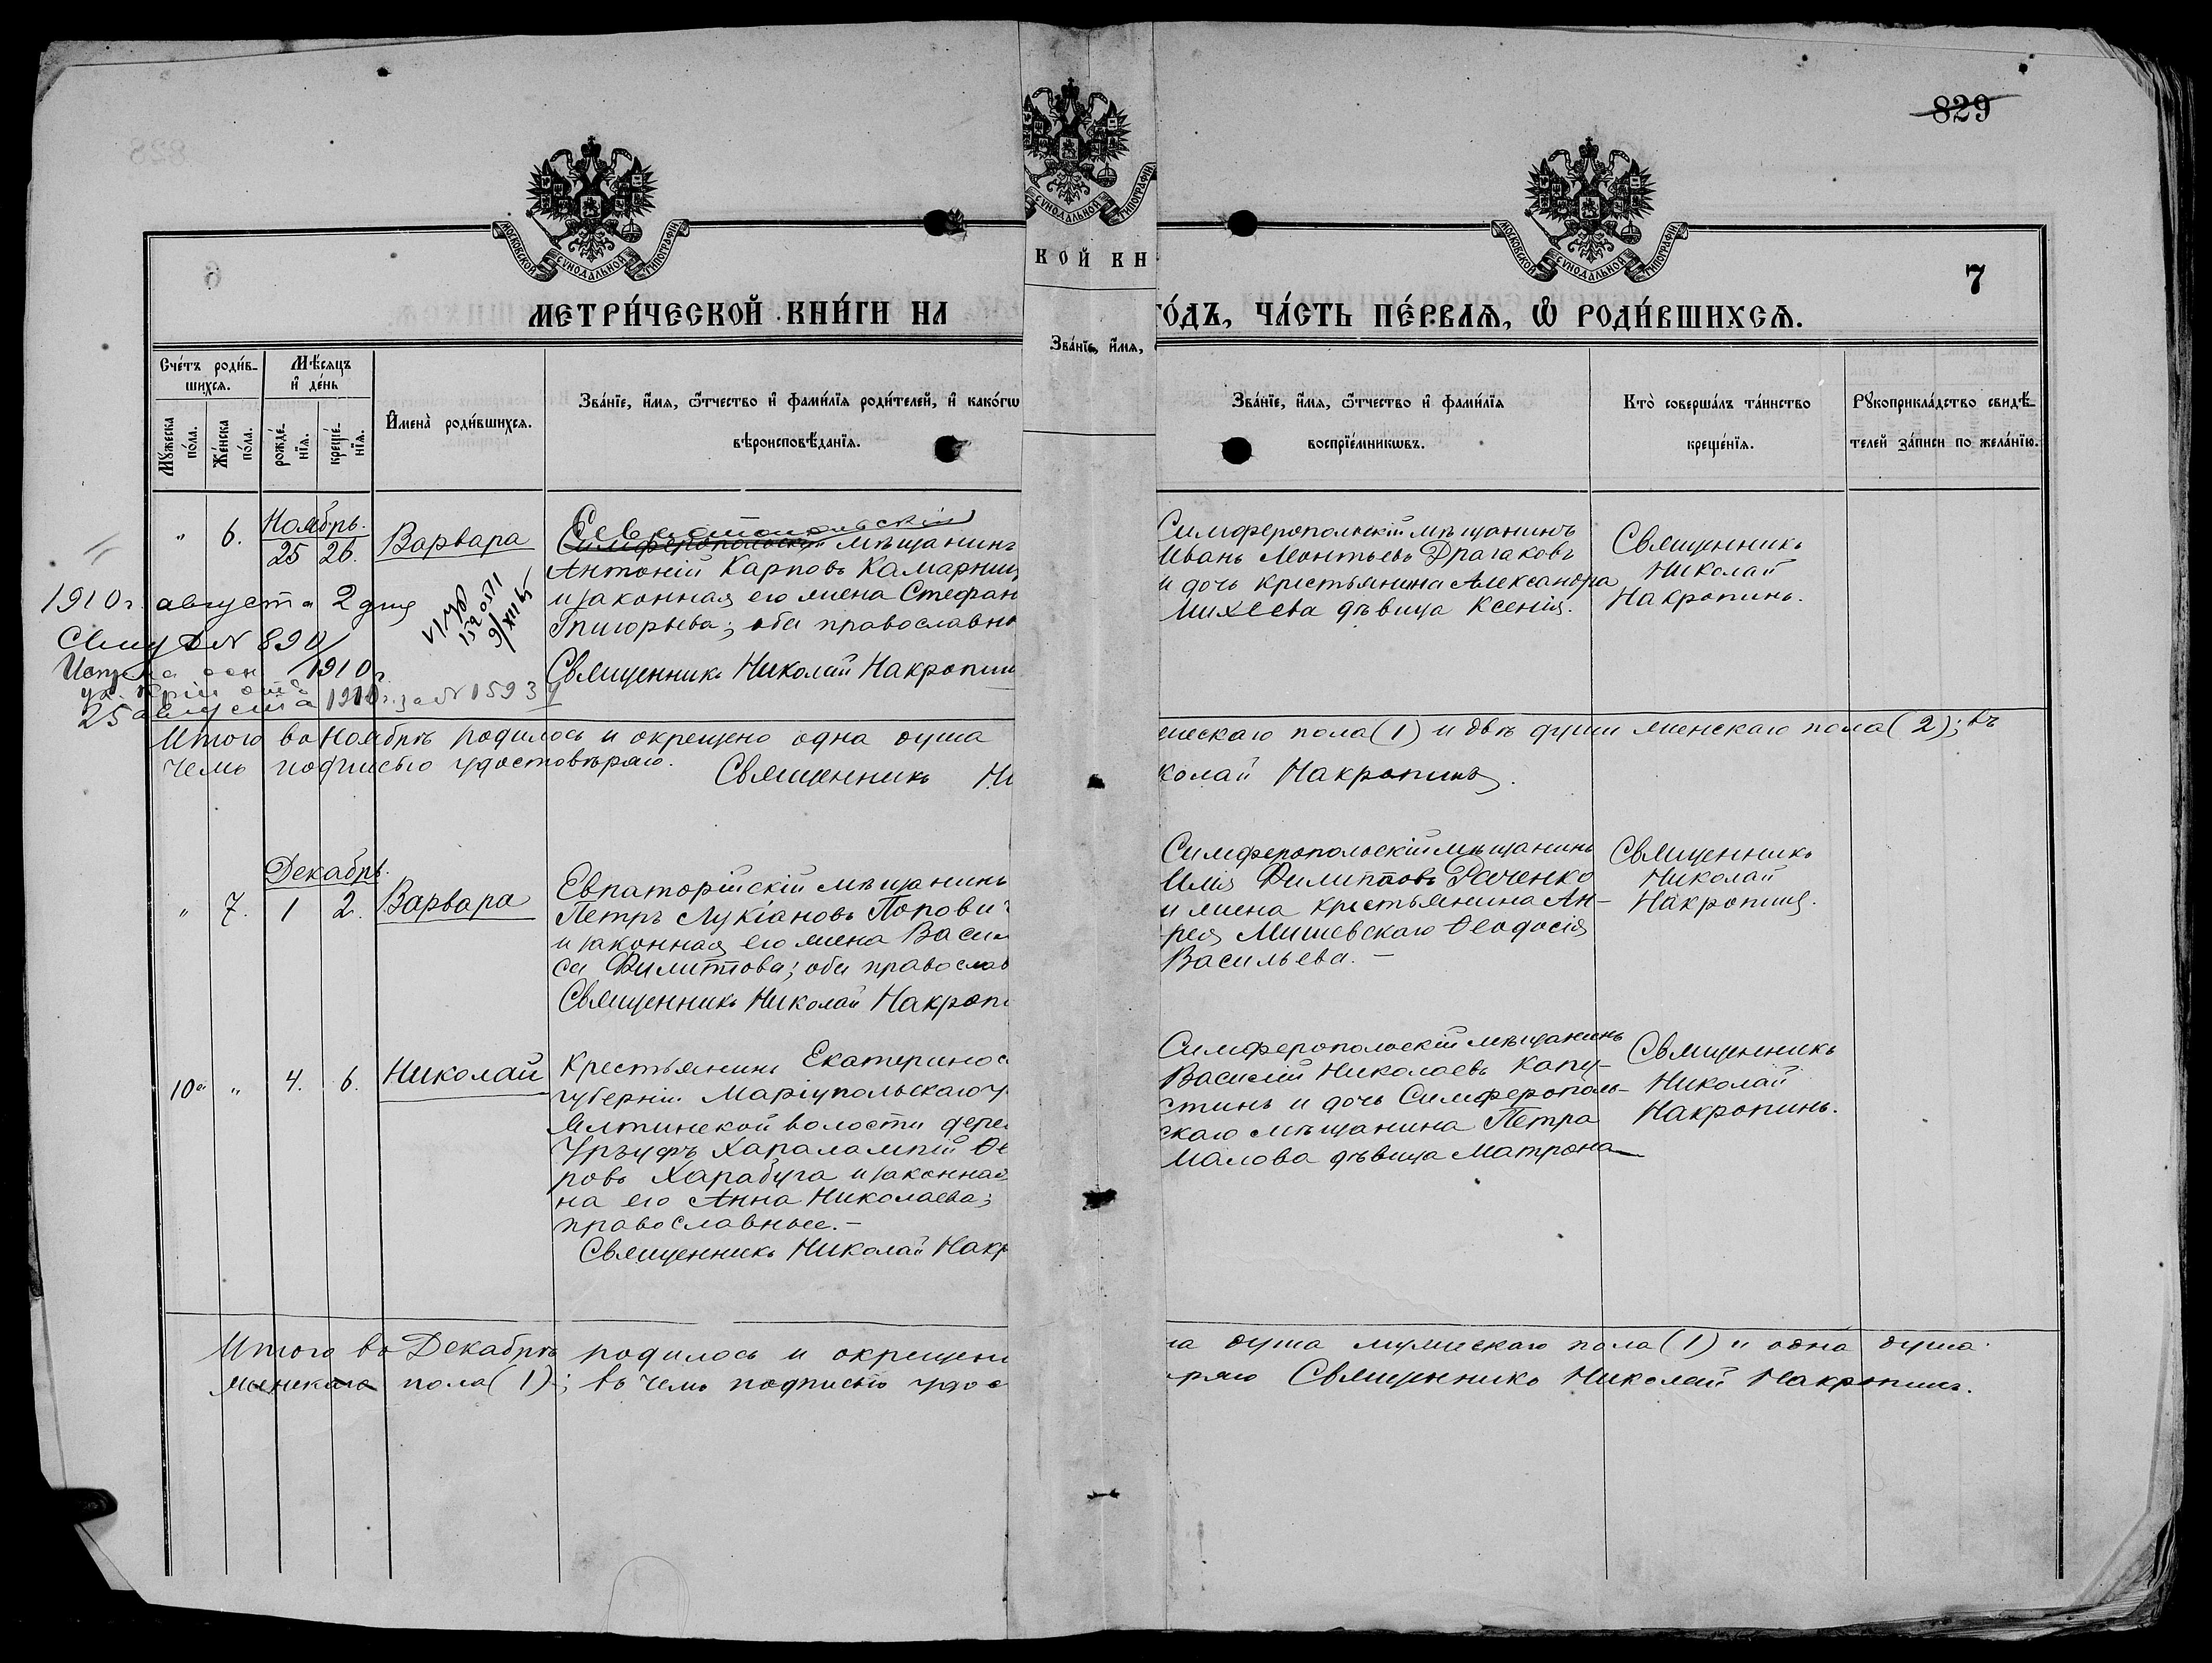 829
7
МОСКОВСКОЙ СѴНОДАЛЬНОЙ ТИПОГРАФІИ
СѴНОДАЛЬНОЙ ТИПОГРАФІИ
МОСКОВСКОЙ СѴНОДАЛЬНОЙ ТИПОГРАФІИ
КОЙ КН
МЕТРИ́ЧЕСКОЙ КНИ́ГИ НА
ГО́ДЪ, ЧА́СТЬ ПЕ́РВАѦ, Ѡ҆ РОДИ́ВШИХСѦ.
Сче́тъ роди́в-
шихсѧ.
Мѣ́сѧцъ
и҆ де́нь
Мꙋ́жеска
по́ла.
Же́нска
по́ла.
рожде́-
нїѧ.
креще́-
нїѧ.
И҆мена̀ роди́вшихсѧ.
Зва́нїе, и҆́мѧ, ѻ҆́тчество и҆ фами́лїѧ роди́телей, и҆ како́гѡ
вѣроисповѣ́данїѧ.
Зва́нїе, и҆́мѧ,
Зва́нїе, и҆́мѧ, ѻ҆́тчество и҆ фами́лїѧ
воспрїе́мникѡвъ.
Кто̀ соверша́лъ та́инство
креще́нїѧ.
Рꙋкоприкла́дство свидѣ́-
телей за́писи по жела́нїю.
Ноябрь.
" 6. 25 26. Варвара
Севастопольскій
Симферопольскій мѣщанинъ
Антоній Карповъ Камарниц
и законная его жена Стефан
Григорьева; оба православно
Священникъ Николай Накропин
Симферопольскій мѣщанинъ
Иванъ Леонтьевъ Драгаковъ
и дочь крестьянина Александра
Михеева дѣвица Ксенія.
Священникъ
Николай
Накропинъ.
1910 г. августа 2 дня
№ 890
1910 г.
25 августа 1910 г. за № 15934
Итого во Ноябрѣ родилось и окрещено одна душа
жескаго пола (1) и двѣ души женскаго пола (2); въ
чемъ подписью удостовѣряю. Священникъ Ни
колай Накропинъ.
Декабрь.
" 7. 1 2. Варвара
Евпаторійскій мѣщанинъ
Петръ Лукіановъ Попови
и законная его жена Васи
са Филиппова; оба православ
Священникъ Николай Накропи
Симферопольскій мѣщанинъ
Илія Филипповъ Раченко
и жена крестьянина Ан-
рея Мишевскаго Ѳеодосія
Васильева. —
Священникъ
Николай
Накропинъ.
10й " 4. 6. Николай
Крестьянинъ Екатеринос
губерніи Маріупольскаго у
Ялтинской волости дере
Урзуфъ Харалампій Ѳе
ровъ Харабуга и законная
на его Анна Николаева;
православные. —
Священникъ Николай Накр
Симферопольскій мѣщанинъ
Василій Николаевъ Капу-
стинъ и дочь Симферополь-
скаго мѣщанина Петра
Малова дѣвица Матрона
Священникъ
Николай
Накропинъ.
Итого во Декабрѣ родилось и окрещен
на душа мужескаго пола (1) и одна душа
женскаго пола (1); въ чемъ подписью удос
ряю Священникъ Николай Накропинъ.